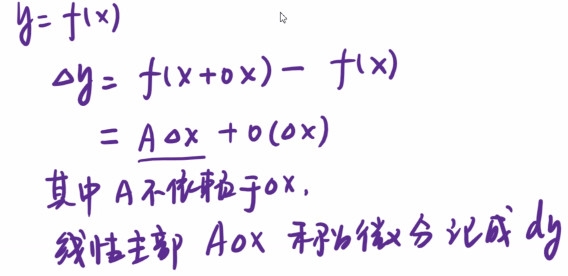 y = f(x)
Δy = f(x+Δx) - f(x)
= AΔx + o(Δx)
其中 A 不依赖于Δx.
线性主部 AΔx 称为微分 记成 dy